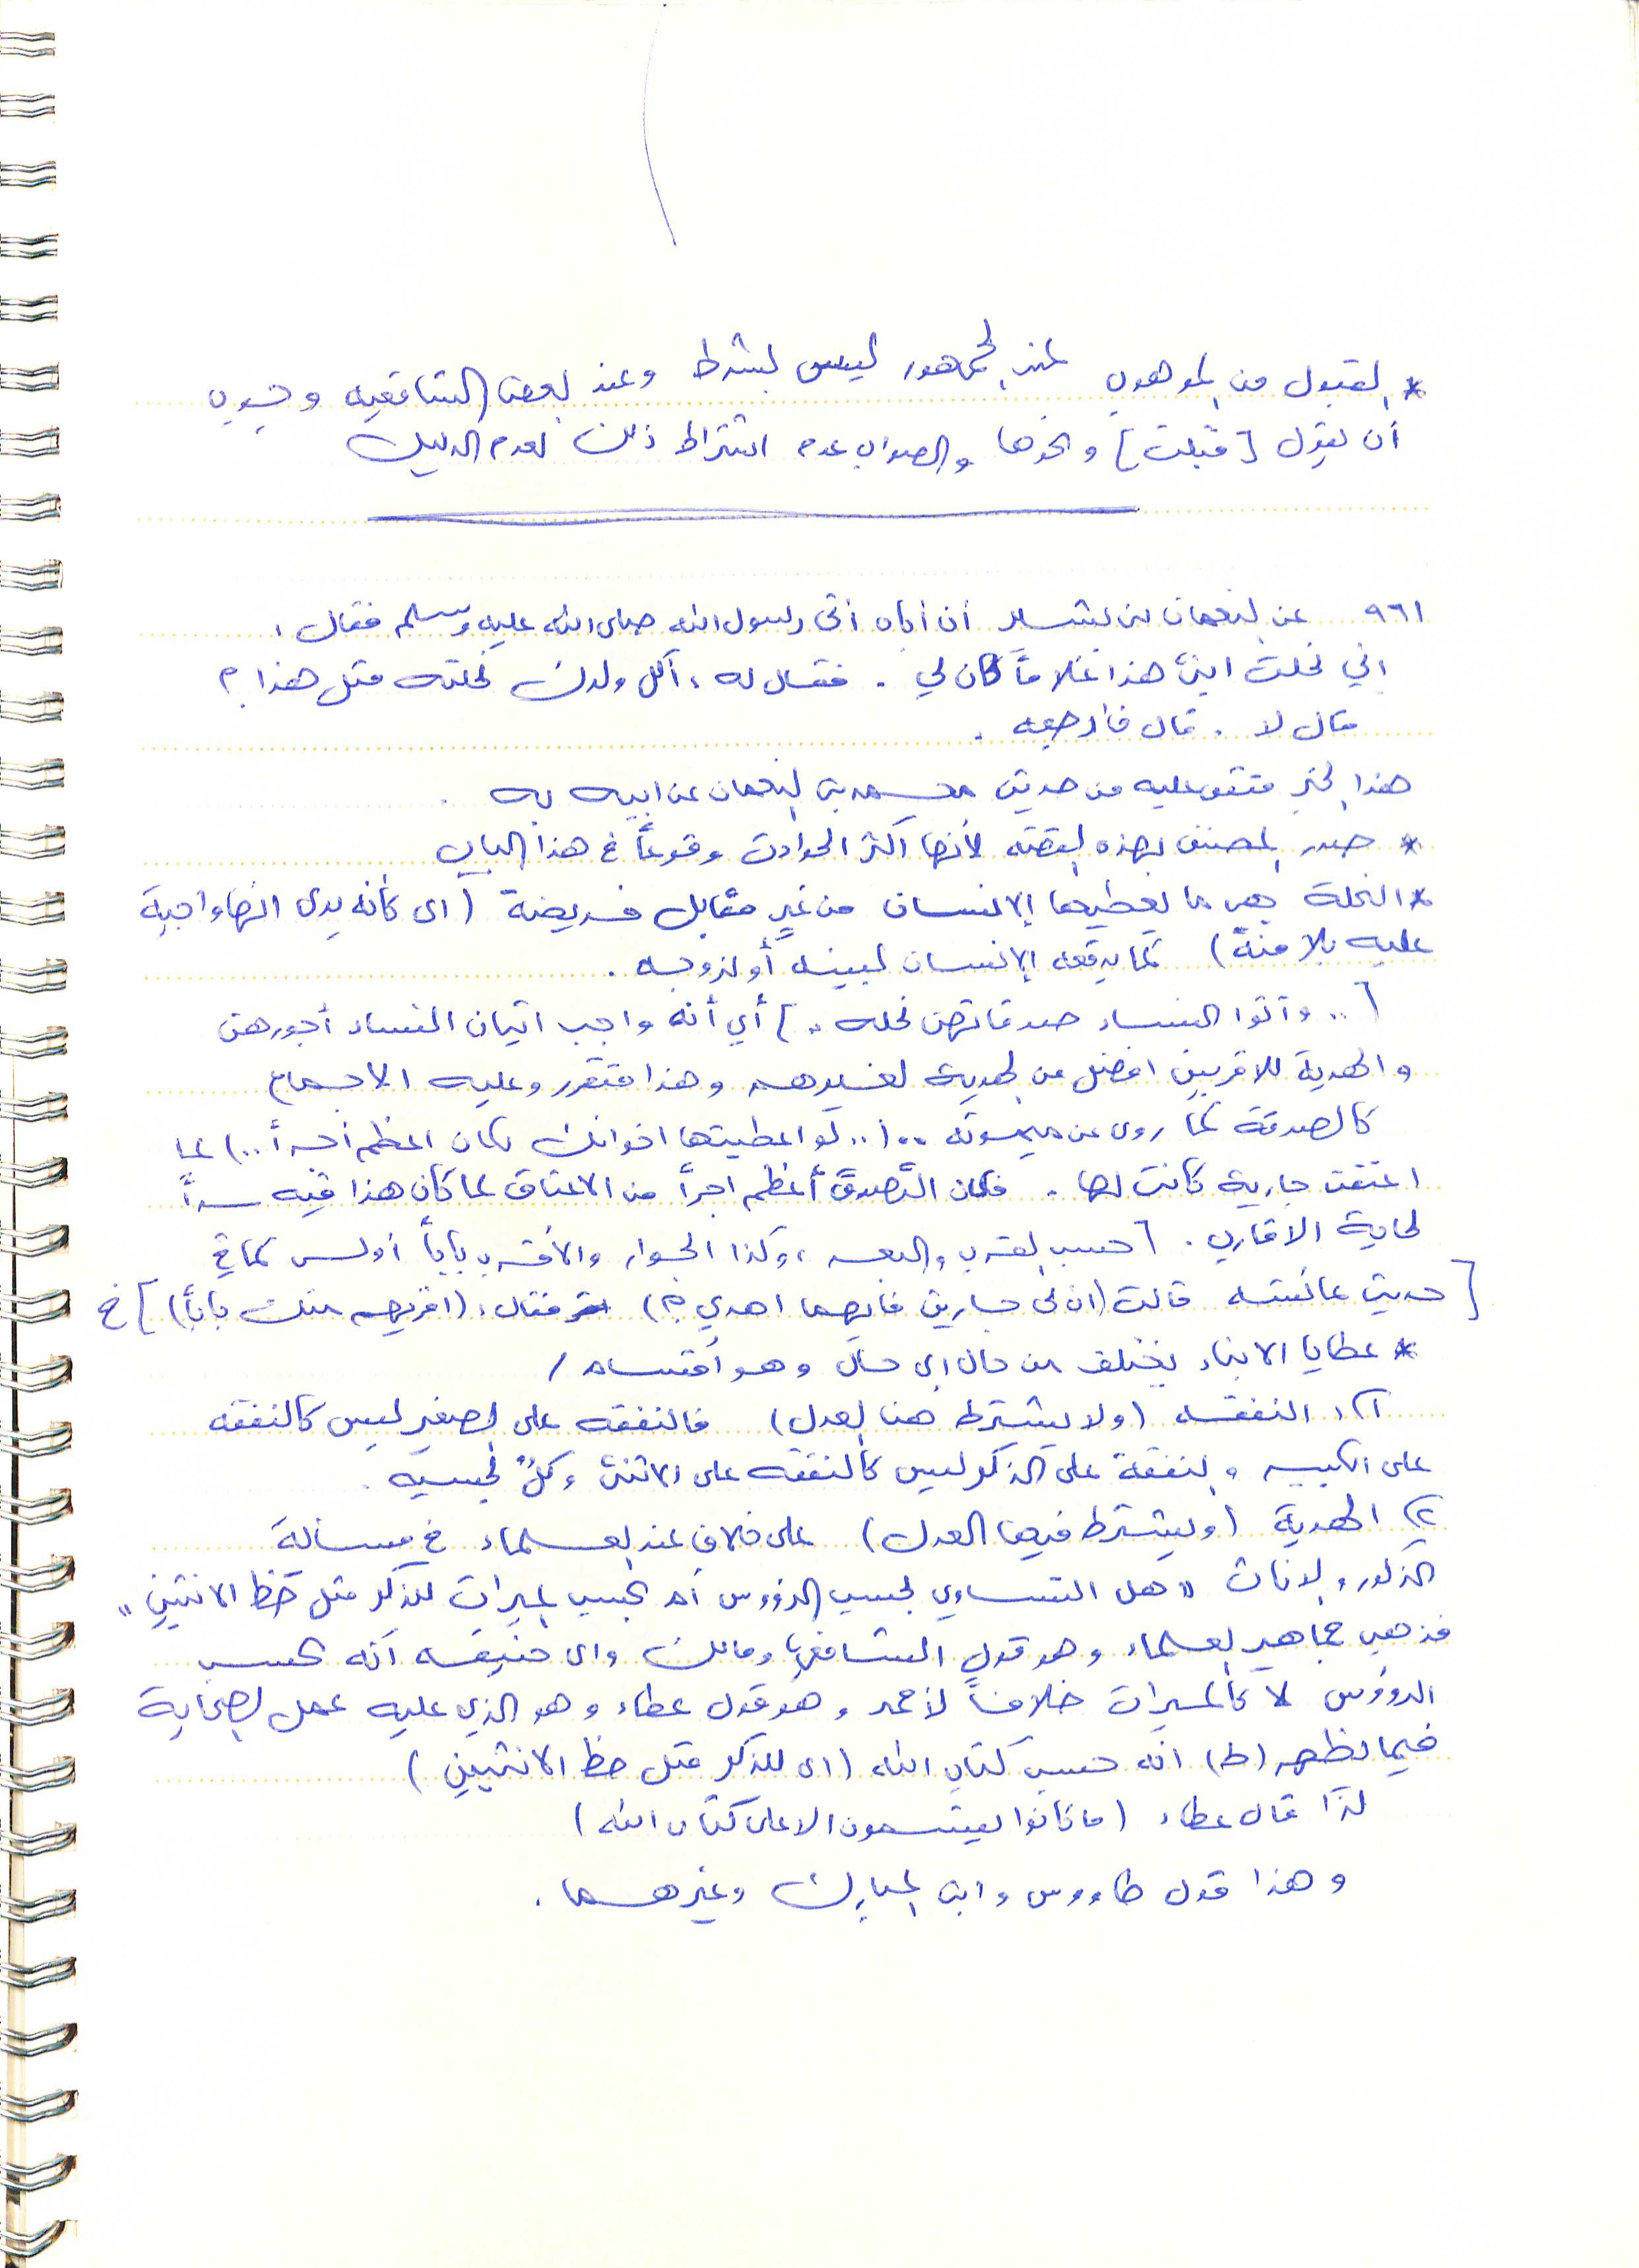 * القبول من الموهوب عند الجمهور ليس بشرط وعند بعض الشافعيه وجوب
أن يقول [قبلت] ونحوها والصواب عدم اشتراط ذلك لعدم الدليل
٩٦١ عن النعمان بن بشير أن أباه أتى رسول الله صلى الله عليه وسلم فقال :
اني نحلت ابني هذا غلاماً كان لي . فقال له : أكل ولدك نحلته مثل هذا ؟
قال لا . قال فارجعه .
هذا الخبر متفق عليه من حديث محمد بن النعمان عن ابيه به .
* صدر المصنف بهذه القصة لأنها اكثر الحوادث وقوعاً في هذا الباب
* النحلة هي ما يعطيها الإنسان من غير مقابل فريضة (اي كأنه يرى انها واجبة
عليه بلا منة) كما يدفعه الإنسان لبنيه أو لزوجه .
[.. وآتوا النساء صدقاتهن نحله ..] أي أنه واجب اتيان النساء أجورهن
والهدية للاقربين افضل من الهدية لغيرهم وهذا متقرر وعليه الاجماع
كالصدقة كما روى عن ميمونه .. (.. لو اعطيتها اخوالك كان اعظم أجراً ..) لما
اعتقت جارية كانت لها . فكان التَّصدق أعظم اجراً من الاعتاق لما كان هذا فيه سداً
لحاجة الاقارب . [حسب القرب والبعد ، وكذا الجوار والأقرب باباً أولى كما في
[حديث عائشه قالت (ان لي جارين فايهما اهدي ؟) فقال : (اقربهم منك باباً)] خ
* عطايا الابناء يختلف من حال الى حال وهو أقسام /
١) النفقه (ولا يشترط هنا العدل) فالنفقه على الصغير ليس كالنفقه
على الكبير والنفقة على الذكر ليس كالنفقه على الانثى وكلٌ بحسبه .
٢) الهدية (ويشترط فيها العدل) على خلاف عند العلماء في مسالة
الذكور والاناث " هل التساوي بحسب الرؤوس أم بحسب الميراث للذكر مثل حظ الانثيين "
فذهب جماهير العلماء وهو قول الشافعي ومالك وابي حنيفه أنه بحسب
الرؤوس لا كالميراث خلافاً لأحمد وهو قول عطاء وهو الذي عليه عمل الصحابة
فيما يظهر (ط) انه حسب كتاب الله (اي للذكر مثل حظ الانثيين)
لذا قال عطاء (ما كانوا يقسمون الا على كتاب الله)
وهذا قول طاووس وابن المبارك وغيرهما .